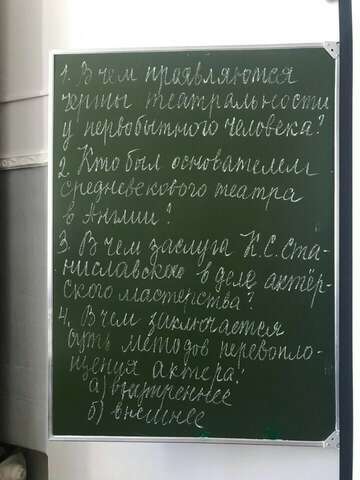 1. В чем проявляются
черты театральности
у первобытного человека?
2. Кто был основателем
средневекового театра
в Англии?
3. В чем заслуга К.С. Ста-
ниславского в деле актёр-
ского мастерства?
4. В чем заключается
суть методов перевопло-
щения актера:
а) внутреннее
б) внешнее